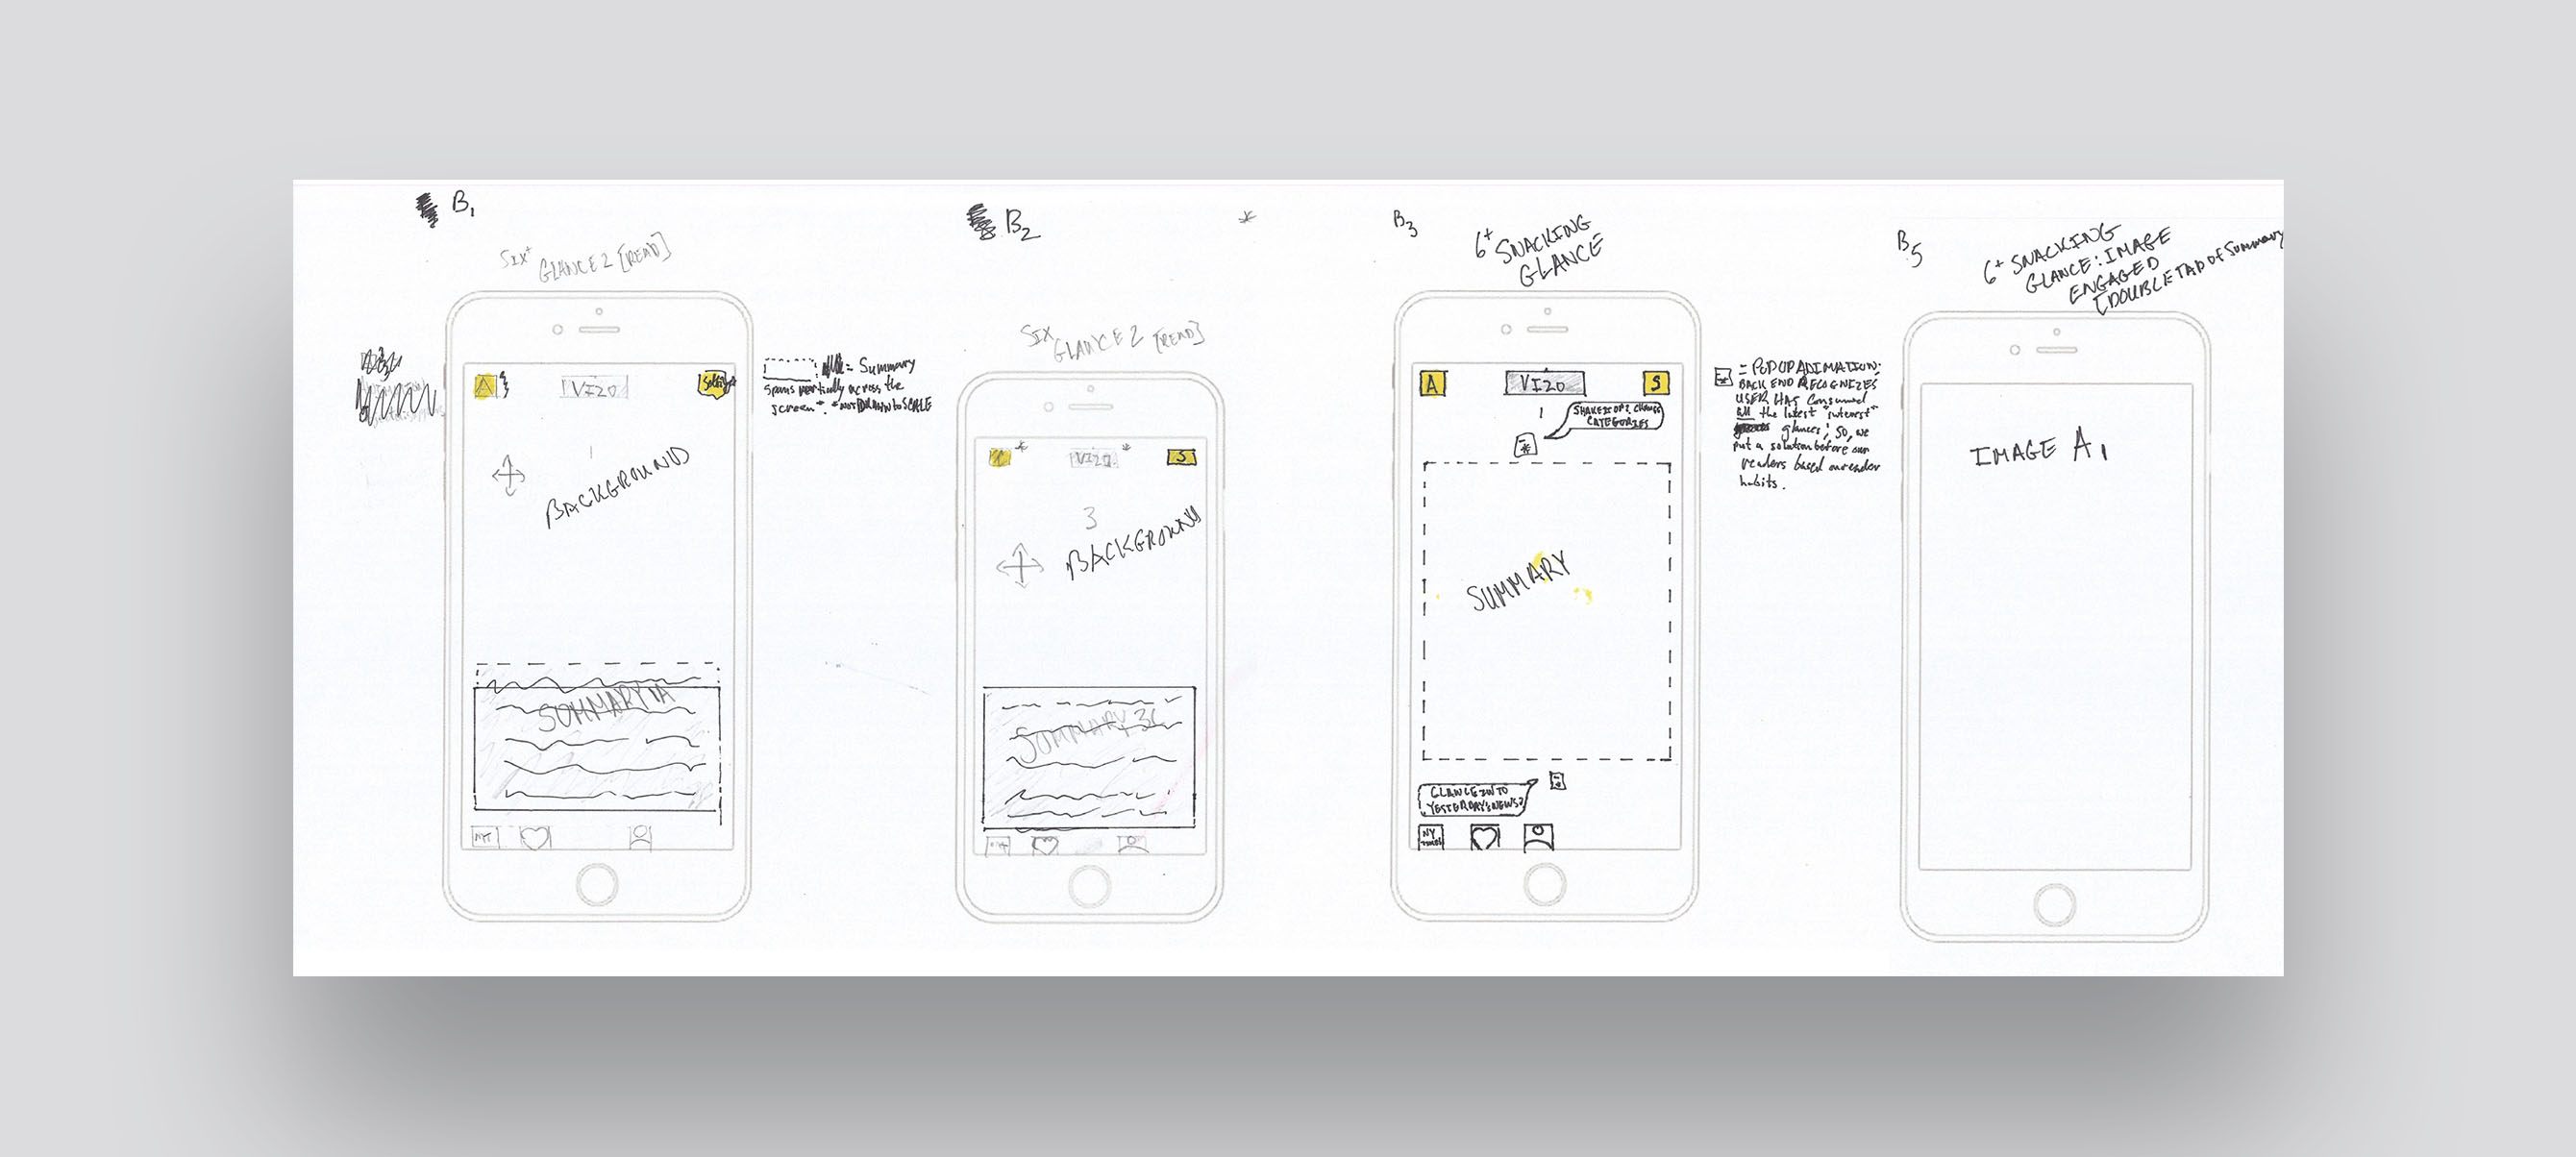 B1
SIX+
GLANCE 2 [READ]
A
VI20
1
BACKGROUND
SUMMARY 1A
NYT
= Summary
spans vertically across the
screen*. *NOT DRAWN to SCALE
B2
*
SIX
GLANCE 2 [READ]
*
*
S
3
BACKGROUND
SUMMARY 3C
B3
6+ SNACKING
GLANCE
A
VI20
S
1
CATEGORIES
*
SUMMARY
GLANCE INTO
YESTERDAY'S NEWS?
NY
TIMES
* = POP UP ANIMATION:
BACK END RECOGNIZES
USER HAS Consumed
all the latest "interest"
glances; So, we
put a solution before our
readers based on reader
habits.
B5
6+ SNACKING
GLANCE: IMAGE
ENGAGED
[DOUBLE TAP of Summary
IMAGE A1